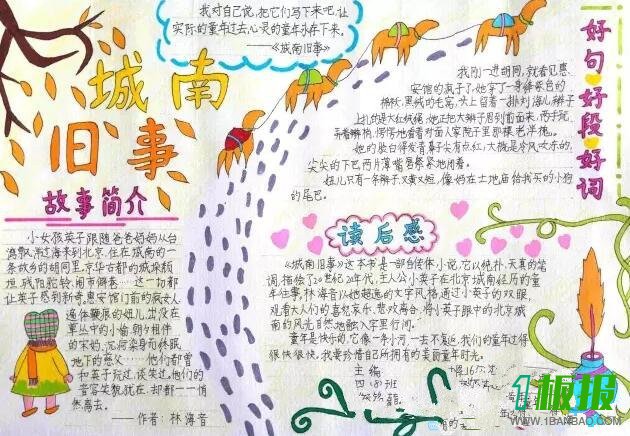 我对自己说,把它们写下来吧,让
实际的童年过去,心灵的童年永存下来。
——《城南旧事》
城南
旧事
故事简介
小女孩英子跟随爸爸妈妈从台
湾飘洋过海来到北京,住在城南的一
条故乡的胡同里,京华古都的城垛颓
垣、残阳驼铃、闹市僻巷……这一切都
让英子感到新奇,惠安馆门前的疯女人
遍体鞭痕的妞儿,出没在
草丛中的小偷,朝夕相伴
的宋妈,沉疴染身而终眠
地下的慈父……他们都曾
和英子玩过,谈笑过,他们的
音容笑貌犹在,却都一一悄
然离去。
——作者:林海音
我刚一进胡同,就看见惠
安馆的疯子了,她穿了一身绛紫色的
棉袄,黑绒的毛窝,头上留着一排刘海儿,辫子
上扎的是大红绒绳,她正把大辫子甩到前面来,两手玩
弄着辫梢,愣愣地看着对面人家院子里那棵老洋槐。
她的脸白得发青,鼻子尖有点红,大概是冷风吹冻的,
尖尖的下巴,两片薄嘴唇紧紧地闭着。
妞儿只有一条辫子,又黄又短,像妈在土地庙给我买的小狗
的尾巴。
好句好段好词
读后感
《城南旧事》这本书是一部自传体小说,它以纯朴、天真的笔
调,描绘了20世纪20年代,主人公小英子在北京城南经历的童
年往事,林海音以她超逸的文字风格,通过小英子的双眼,
观看大人们的喜怒哀乐、悲欢离合,将小英子眼中的北京城
南的风光自然地融入字里行间。
童年是快乐的,它像一条小河,一去不复返。我们的童年过得
很快很快,我要珍惜自己所拥有的美丽童年时光。
主编
四·(8)班
1板报
WWW.1BANBAO.COM